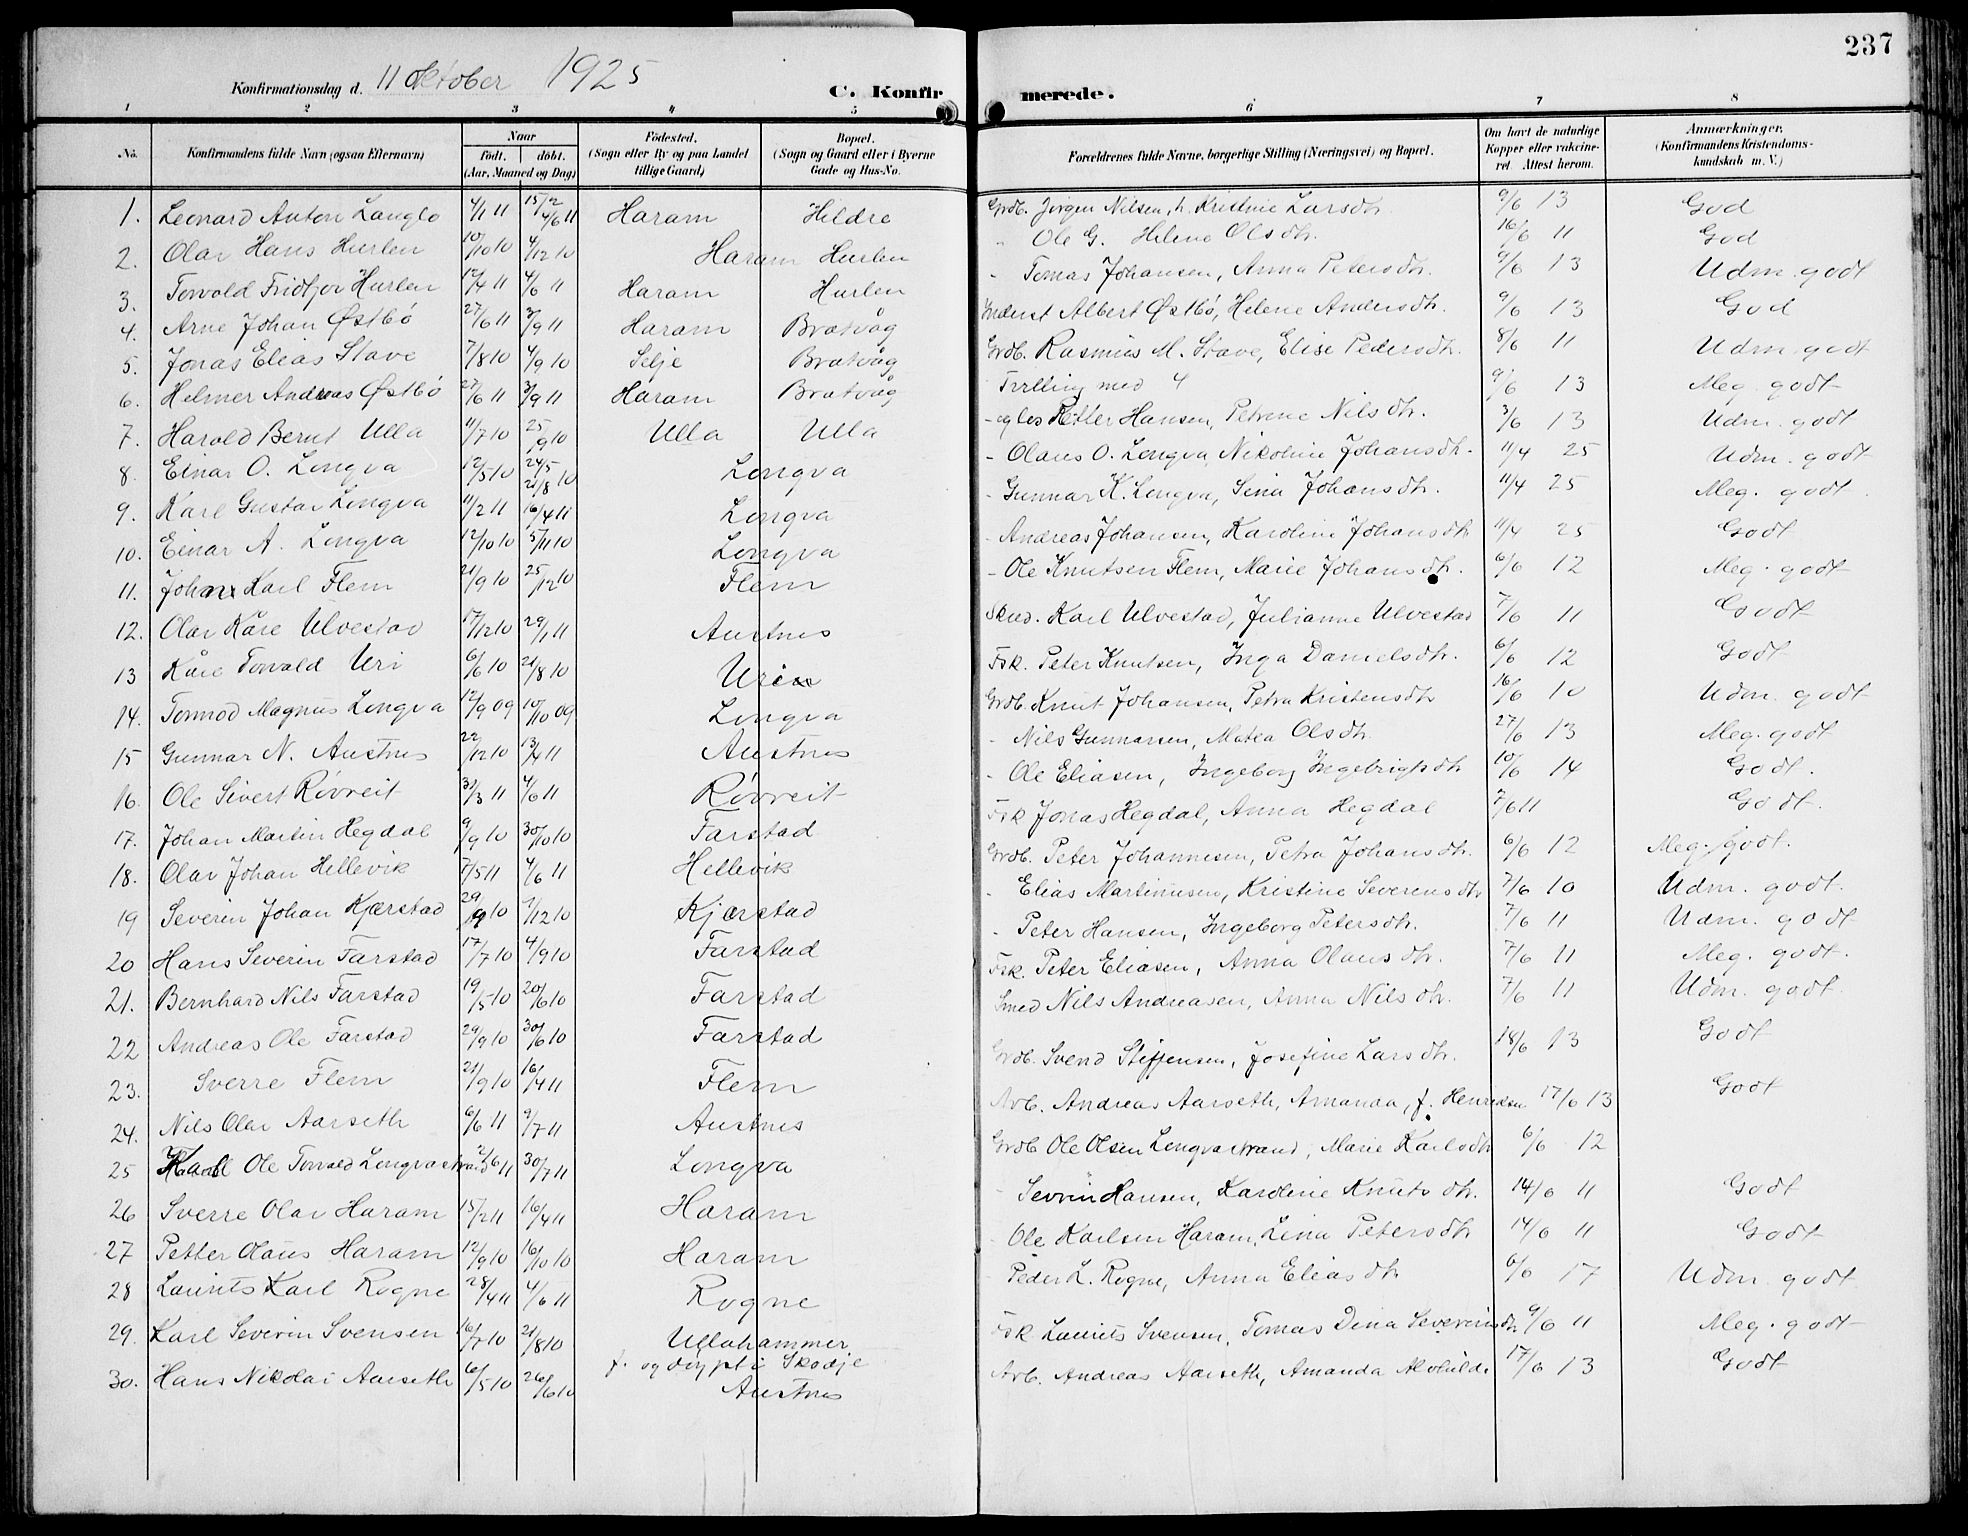 237
Konfirmationsdag d. 11 Oktober 1925 C. Konfirmerede.
1 2 3 4 5 6 7 8
No. Konfirmandens fulde Navn (ogsaa Efternavn) Naar födt. döbt. (Aar, Maaned og Dag) Födested. (Sogn eller By og paa Landet tillige Gaard) Bopæl. (Sogn og Gaard eller i Byerne Gade og Hus-No. Forældrenes fulde Navne, borgerlige Stilling (Næringsvei) og Bopæl. Om havt de naturlige Kopper eller vakcineret Attest herom. Anmærkninger. (Konfirmandens Kristendomskundskab m. V.)
1. Leonard Anton Langlo 4/1 11 15/2 4/6 11 Haram Hildre Grdb. Jörgen Nilsen, h. Kristine Larsdtr. 9/6 13 God
2. Olav Hans Hurlen 10/10 10 4/12 10 Haram Hurlen - Ole G. Helene Olsdtr. 16/6 11 God
3. Torvald Fridtjov Hurlen 12/4 11 4/6 11 Haram Hurlen - Tomas Johansen, Anna Petersdtr. 9/6 13 Udm. godt
4. Arne Johan Østbö 27/6 11 3/9 11 Haram Bratvåg Inderst Albert Østbö, Helene Andersdtr. 9/6 13 God
5. Jonas Elias Stave 7/8 10 4/9 10 Selje Bratvåg Grdb. Rasmus M. Stave, Elise Pedersdtr. 8/6 11 Udm. godt
6. Helmer Andreas Østbö 27/6 11 3/9 11 Haram Bratvåg Tvilling med 4 9/6 13 Meg. godt
7. Harald Bernt Ulla 11/7 10 25/9 10 Ulla Ulla Hansen, Petrine Nilsdtr. 3/6 13 Udm. godt
8. Einar O. Longva 12/5 10 24/5 21/8 10 Longva - Olaus O. Longva, Nikoline Johansdtr. 11/4 25 Udm. godt
9. Karl Gustav Longva 11/2 11 16/4 11 Longva - Gunnar K. Longva, Sina Johansdtr. 11/4 25 Meg. godt
10. Einar A. Longva 12/10 10 5/11 10 Longva - Andreas Johansen, Karoline Johansdtr 11/4 25 Godt
11. Johan Karl Flem 21/9 10 25/12 10 Flem - Ole Knutsen Flem, Marie Johansdtr. 6/6 12 Meg. godt
12. Olav Kåre Ulvestad 17/12 10 29/1 11 Austnes Karl Ulvestad, Julianne Ulvestad 7/6 11 Godt
13 Kåre Torvald Uri 6/6 10 21/8 10 Uri Fsk. Peter Knutsen, Inga Danielsdtr. 6/6 12 Godt
14. Tormod Magnus Longva 12/9 09 10/10 09 Longva Grdb. Knut Johansen, Petra Kristensdtr 16/6 10 Udm. godt
15 Gunnar N. Austnes 22/12 10 13/4 11 Austnes - Nils Gunnarsen, Matea Olsdtr. 27/6 13 Meg. godt
16. Ole Sivert Rövreit 30/3 11 4/6 11 Rövreit - Ole Eliasen, Ingeborg Ingebrigtsdtr 10/6 14 Godt.
17. Johan Martin Hegdal 9/9 10 30/10 10 Farstad Fsk Jonas Hegdal, Anna Hegdal 7/6 11 Godt.
18. Olav Johan Hellevik 7/5 11 4/6 11 Hellevik Grdb. Peter Johannesen, Petra Johansdtr. 6/6 12 Meg. godt.
19 Severin Johan Kjærstad 29/9 10 4/12 10 Kjærstad - Elias Martinusen, Kristine Severinsdtr 7/6 10 Udm. godt.
20 Hans Severin Farstad 17/7 10 4/9 10 Farstad - Peter Hansen, Ingeborg Petersdtr. 7/6 11 Udm. godt
21. Bernhard Nils Farstad 19/5 10 20/6 10 Farstad Fsk. Peter Eliasen, Anna Olausdtr. 7/6 11 Meg. godt.
22 Andreas Ole Farstad 29/9 10 30/6 10 Farstad Smed Nils Andreasen, Anna Nilsdtr. 7/6 11 Udm. godt.
23. Sverre Flem 21/9 10 16/4 11 Flem Grdb. Svend Steffensen, Josefine Larsdtr. 18/6 13 Godt
24. Nils Olav Aarseth 6/6 11 9/7 11 Austnes Arb. Andreas Aarseth, Amanda, f. Henriksen 17/6 13 Godt
25 Karl Ole Torvald Longvastrand 2/6 11 30/7 11 Longva Grdb Ole Olsen Longvastrand, Marie Karlsdtr 6/6 12
26 Sverre Olav Haram 15/2 11 16/4 11 Haram - Sevrin Hansen, Karoline Knutsdtr. 14/6 11 Godt
27 Petter Olaus Haram 12/9 10 16/10 10 Haram - Ole Karlsen Haram, Lina Petersdtr 14/6 11 Godt
28 Laurits Karl Rogne 28/4 11 4/6 11 Rogne - Peder L. Rogne, Anna Eliasdtr 6/6 17 Udm. godt
29. Karl Severin Svensen 16/7 10 21/8 10 Ullahammer Fsk Laurits Svensen, Tomas Dina Severinsdtr 9/6 11 Meg. godt
f. og döypt i Skodje
30. Hans Nikolai Aarseth 6/5 10 26/6 10 Austnes Arb. Andreas Aarseth, Amanda Alvhilde 17/6 13 Godt